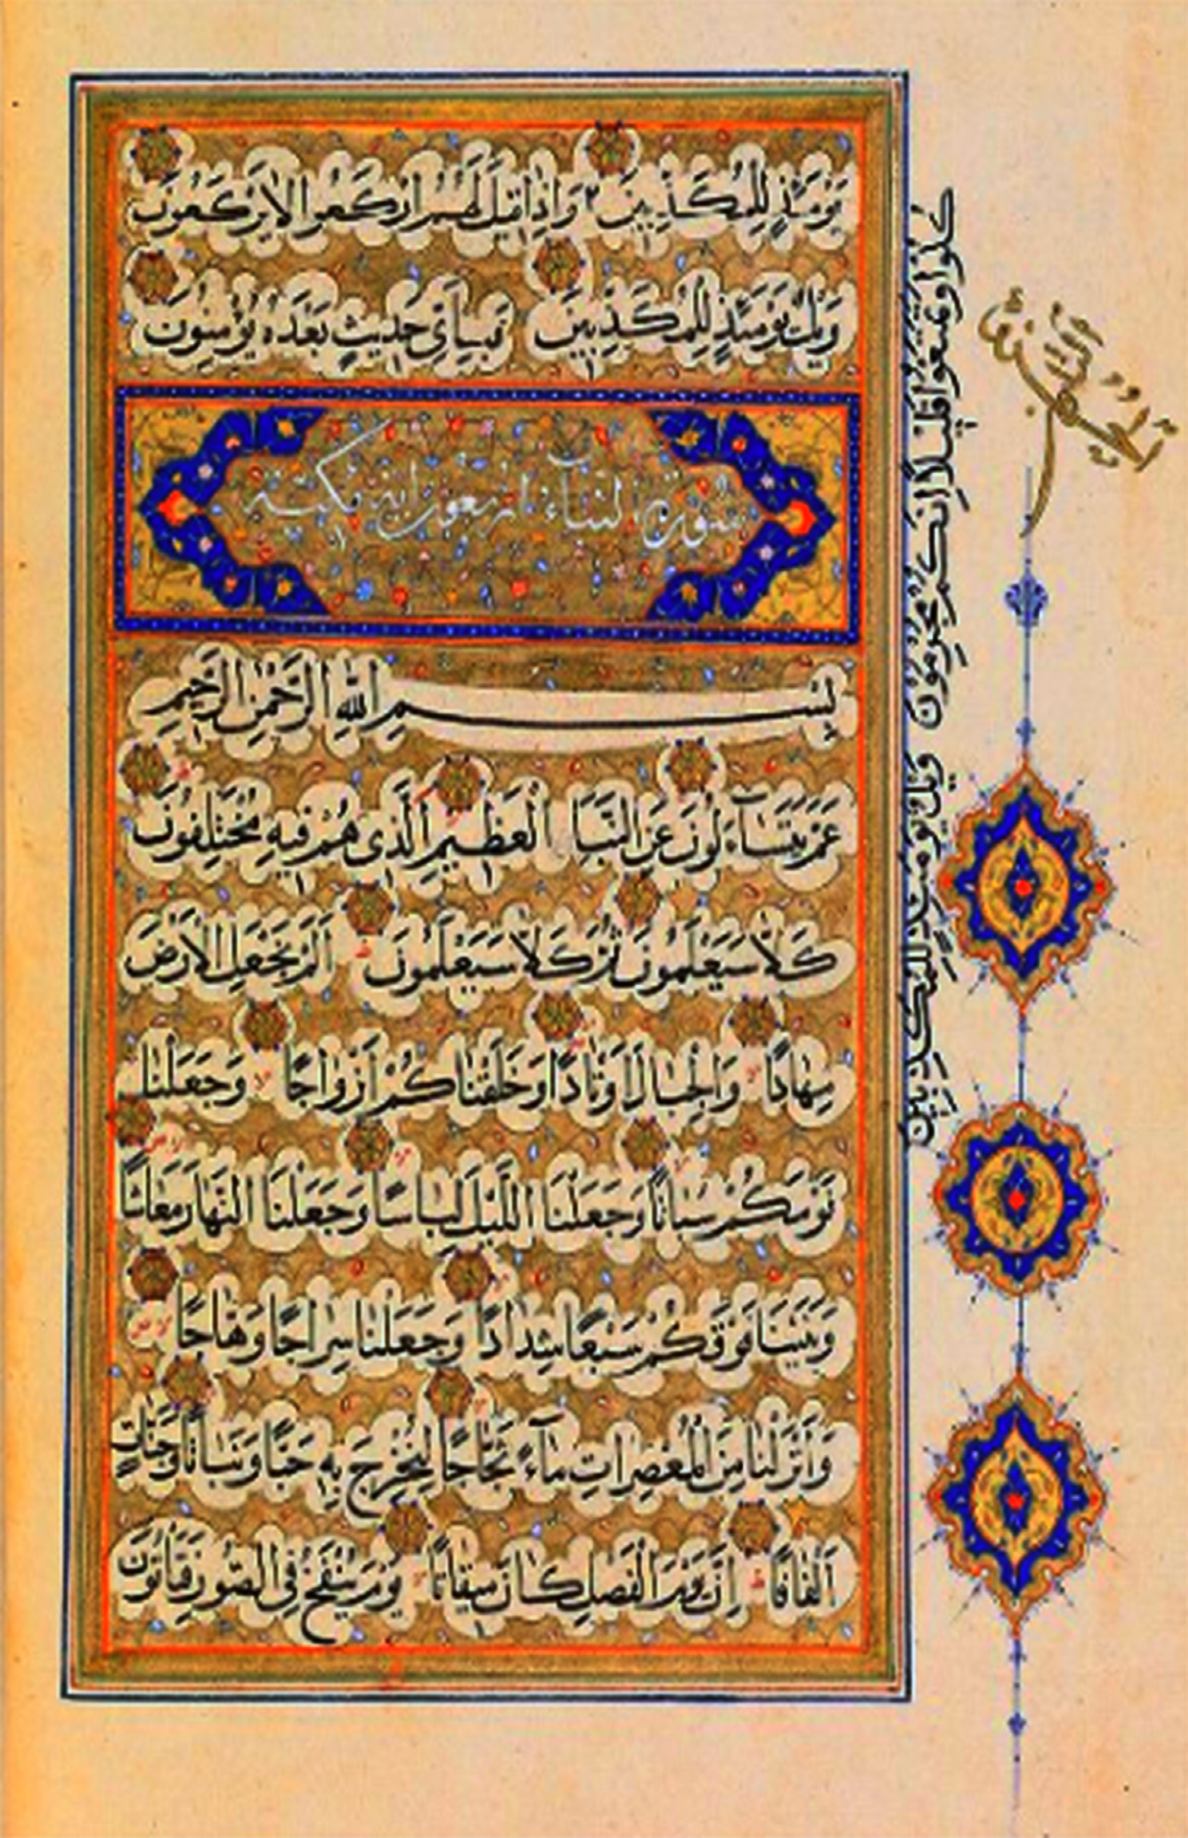 يَوْمَئِذٍ لِلْمُكَذِّبِينَ وَاِذَا قِيلَ لَهُمُ ارْكَعُوا لَا يَرْكَعُونَ
وَيْلٌ يَوْمَئِذٍ لِلْمُكَذِّبِينَ فَبِاَىِّ حَدِيثٍ بَعْدَهُ يُؤْمِنُونَ
سورة النباء اربعون اية مكية
بِسْمِ اللهِ الرَّحْمٰنِ الرَّحِيمِ
عَمَّ يَتَسَآءَلُونَ عَنِ النَّبَاِ الْعَظِيمِ الَّذِى هُمْ فِيهِ مُخْتَلِفُونَ
كَلَّا سَيَعْلَمُونَ ثُمَّ كَلَّا سَيَعْلَمُونَ اَلَمْ نَجْعَلِ الْاَرْضَ
مِهَادًا وَالْجِبَالَ اَوْتَادًا وَخَلَقْنَاكُمْ اَزْوَاجًا وَجَعَلْنَا
نَوْمَكُمْ سُبَاتًا وَجَعَلْنَا اللَّيْلَ لِبَاسًا وَجَعَلْنَا النَّهَارَ مَعَاشًا
وَبَنَيْنَا فَوْقَكُمْ سَبْعًا شِدَادًا وَجَعَلْنَا سِرَاجًا وَهَّاجًا
وَاَنْزَلْنَا مِنَ الْمُعْصِرَاتِ مَآءً ثَجَّاجًا لِنُخْرِجَ بِهِ حَبًّا وَنَبَاتًا وَجَنَّاتٍ
اَلْفَافًا اِنَّ يَوْمَ الْفَصْلِ كَانَ مِيقَاتًا يَوْمَ يُنْفَخُ فِى الصُّورِ فَتَاْتُونَ
كُلُوا وَتَمَتَّعُوا قَلِيلًا اِنَّكُمْ مُجْرِمُونَ وَيْلٌ يَوْمَئِذٍ لِلْمُكَذِّبِينَ